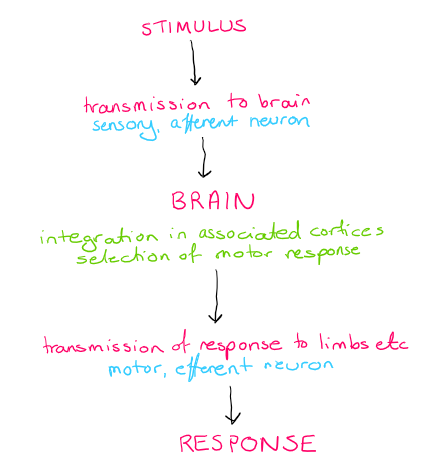 STIMULUS
transmission to brain
sensory, afferent neuron
BRAIN
integration in associated cortices
selection of motor response
transmission of response to limbs etc
motor, efferent neuron
RESPONSE